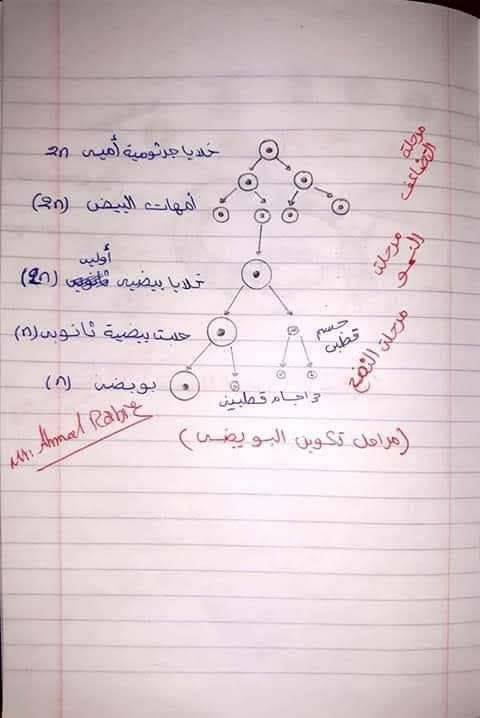 مرحلة التضاعف
خلايا جرثومية أمية 2n
أمهات البيض (2n)
مرحلة النمو
أولية
خلايا بيضية (2n)
مرحلة النضج
جسم قطبى
خلية بيضية ثانوية (n)
بويضة (n)
3 اجسام قطبية
(مراحل تكوين البويضة)
Mr. Ahmed Rabie